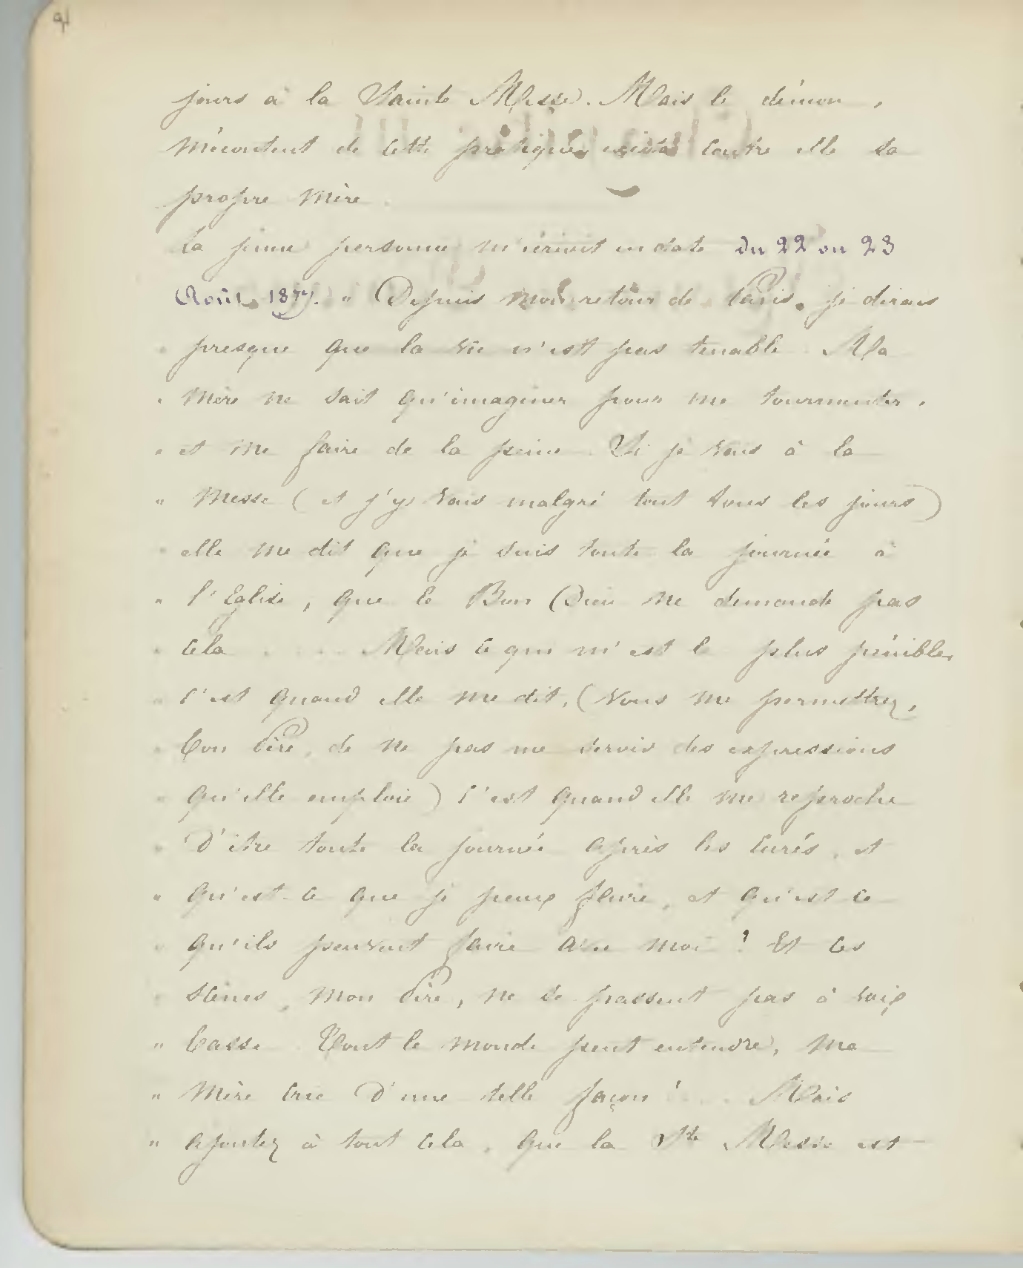 jours à la Sainte Messe. Mais le démon,
mécontent de cette pratique, excita contre elle sa
propre mère.
La jeune personne m'écrivit en date du 22 ou 23
Août 1877. " Depuis mon retour de Paris, je dirais
" presque que la vie n'est pas tenable. Ma
" mère ne sait qu'imaginer pour me tourmenter,
" et me faire de la peine. Si je vais à la
" Messe (et j'y vais malgré tout tous les jours)
" elle me dit que je suis toute la journée à
" l'Eglise, que le Bon Dieu ne demande pas
" cela .... Mais ce qui m'est le plus pénible,
" c'est quand elle me dit, (vous me permettrez,
" bon Père, de ne pas me servir des expressions
" qu'elle emploie) c'est quand elle me reproche
" d'être toute la journée après les curés, et
" qu'est-ce que je peux faire, et qu'est-ce
" qu'ils peuvent faire avec moi ! Et ces
" scènes, mon Père, ne se passent pas à voix
" basse. Tout le monde peut entendre, ma
" mère crie d'une telle façon ! ... Mais
" ajoutez à tout cela, que la Ste Messe est